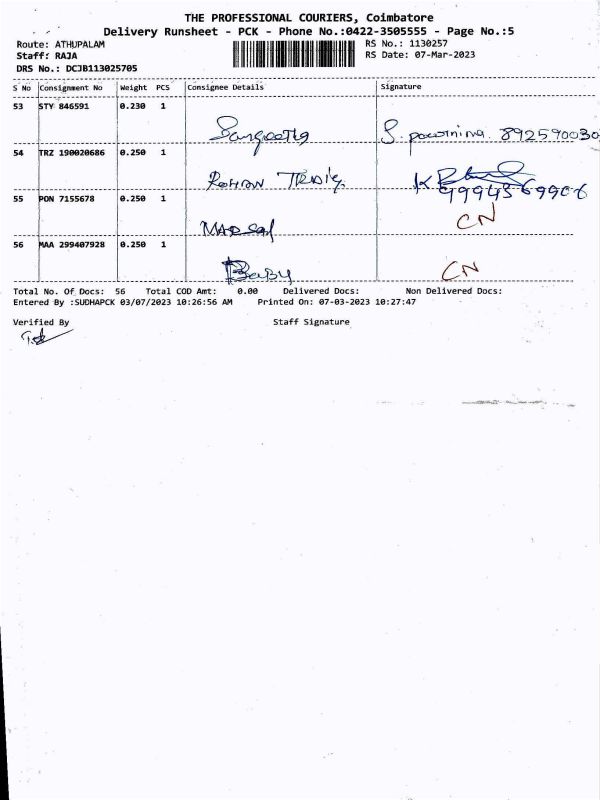 THE PROFESSIONAL COURIERS, Coimbatore
Delivery Runsheet - PCK - Phone No.:0422-3505555 - Page No.:5
Route: ATHUPALAM
RS No.: 1130257
Staff: RAJA
RS Date: 07-Mar-2023
DRS No.: DCJB113025705
S No Consignment No Weight PCS Consignee Details Signature
53 STY 846591 0.230 1
Sangeetha S. poornima. 892590030
54 TRZ 190020686 0.250 1
ROHAN
99943 69906
55 PON 7155678 0.250 1
CN
56 MAA 299407928 0.250 1
Baby CN
Total No. Of Docs: 56 Total COD Amt: 0.00 Delivered Docs: Non Delivered Docs:
Entered By :SUDHAPCK 03/07/2023 10:26:56 AM Printed On: 07-03-2023 10:27:47
Verified By Staff Signature